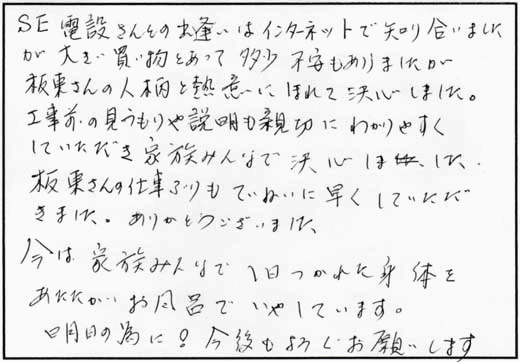 SE電設さんとの出逢いはインターネットで知り合いました
が大きい買い物とあって多少不安もありましたが
板東さんの人柄と熱意にほれて決心しました。
工事前の見うもりや説明も親切にわかりやすく
していただき家族みんなで決心ました.
板東さんの仕事ぶりもていねいに早くしていただ
きました。ありがとうございました
今は家族みんなで1日つかれた身体を
あたたかいお風呂でいやしています。
明日の為に!今後もよろしくお願いします